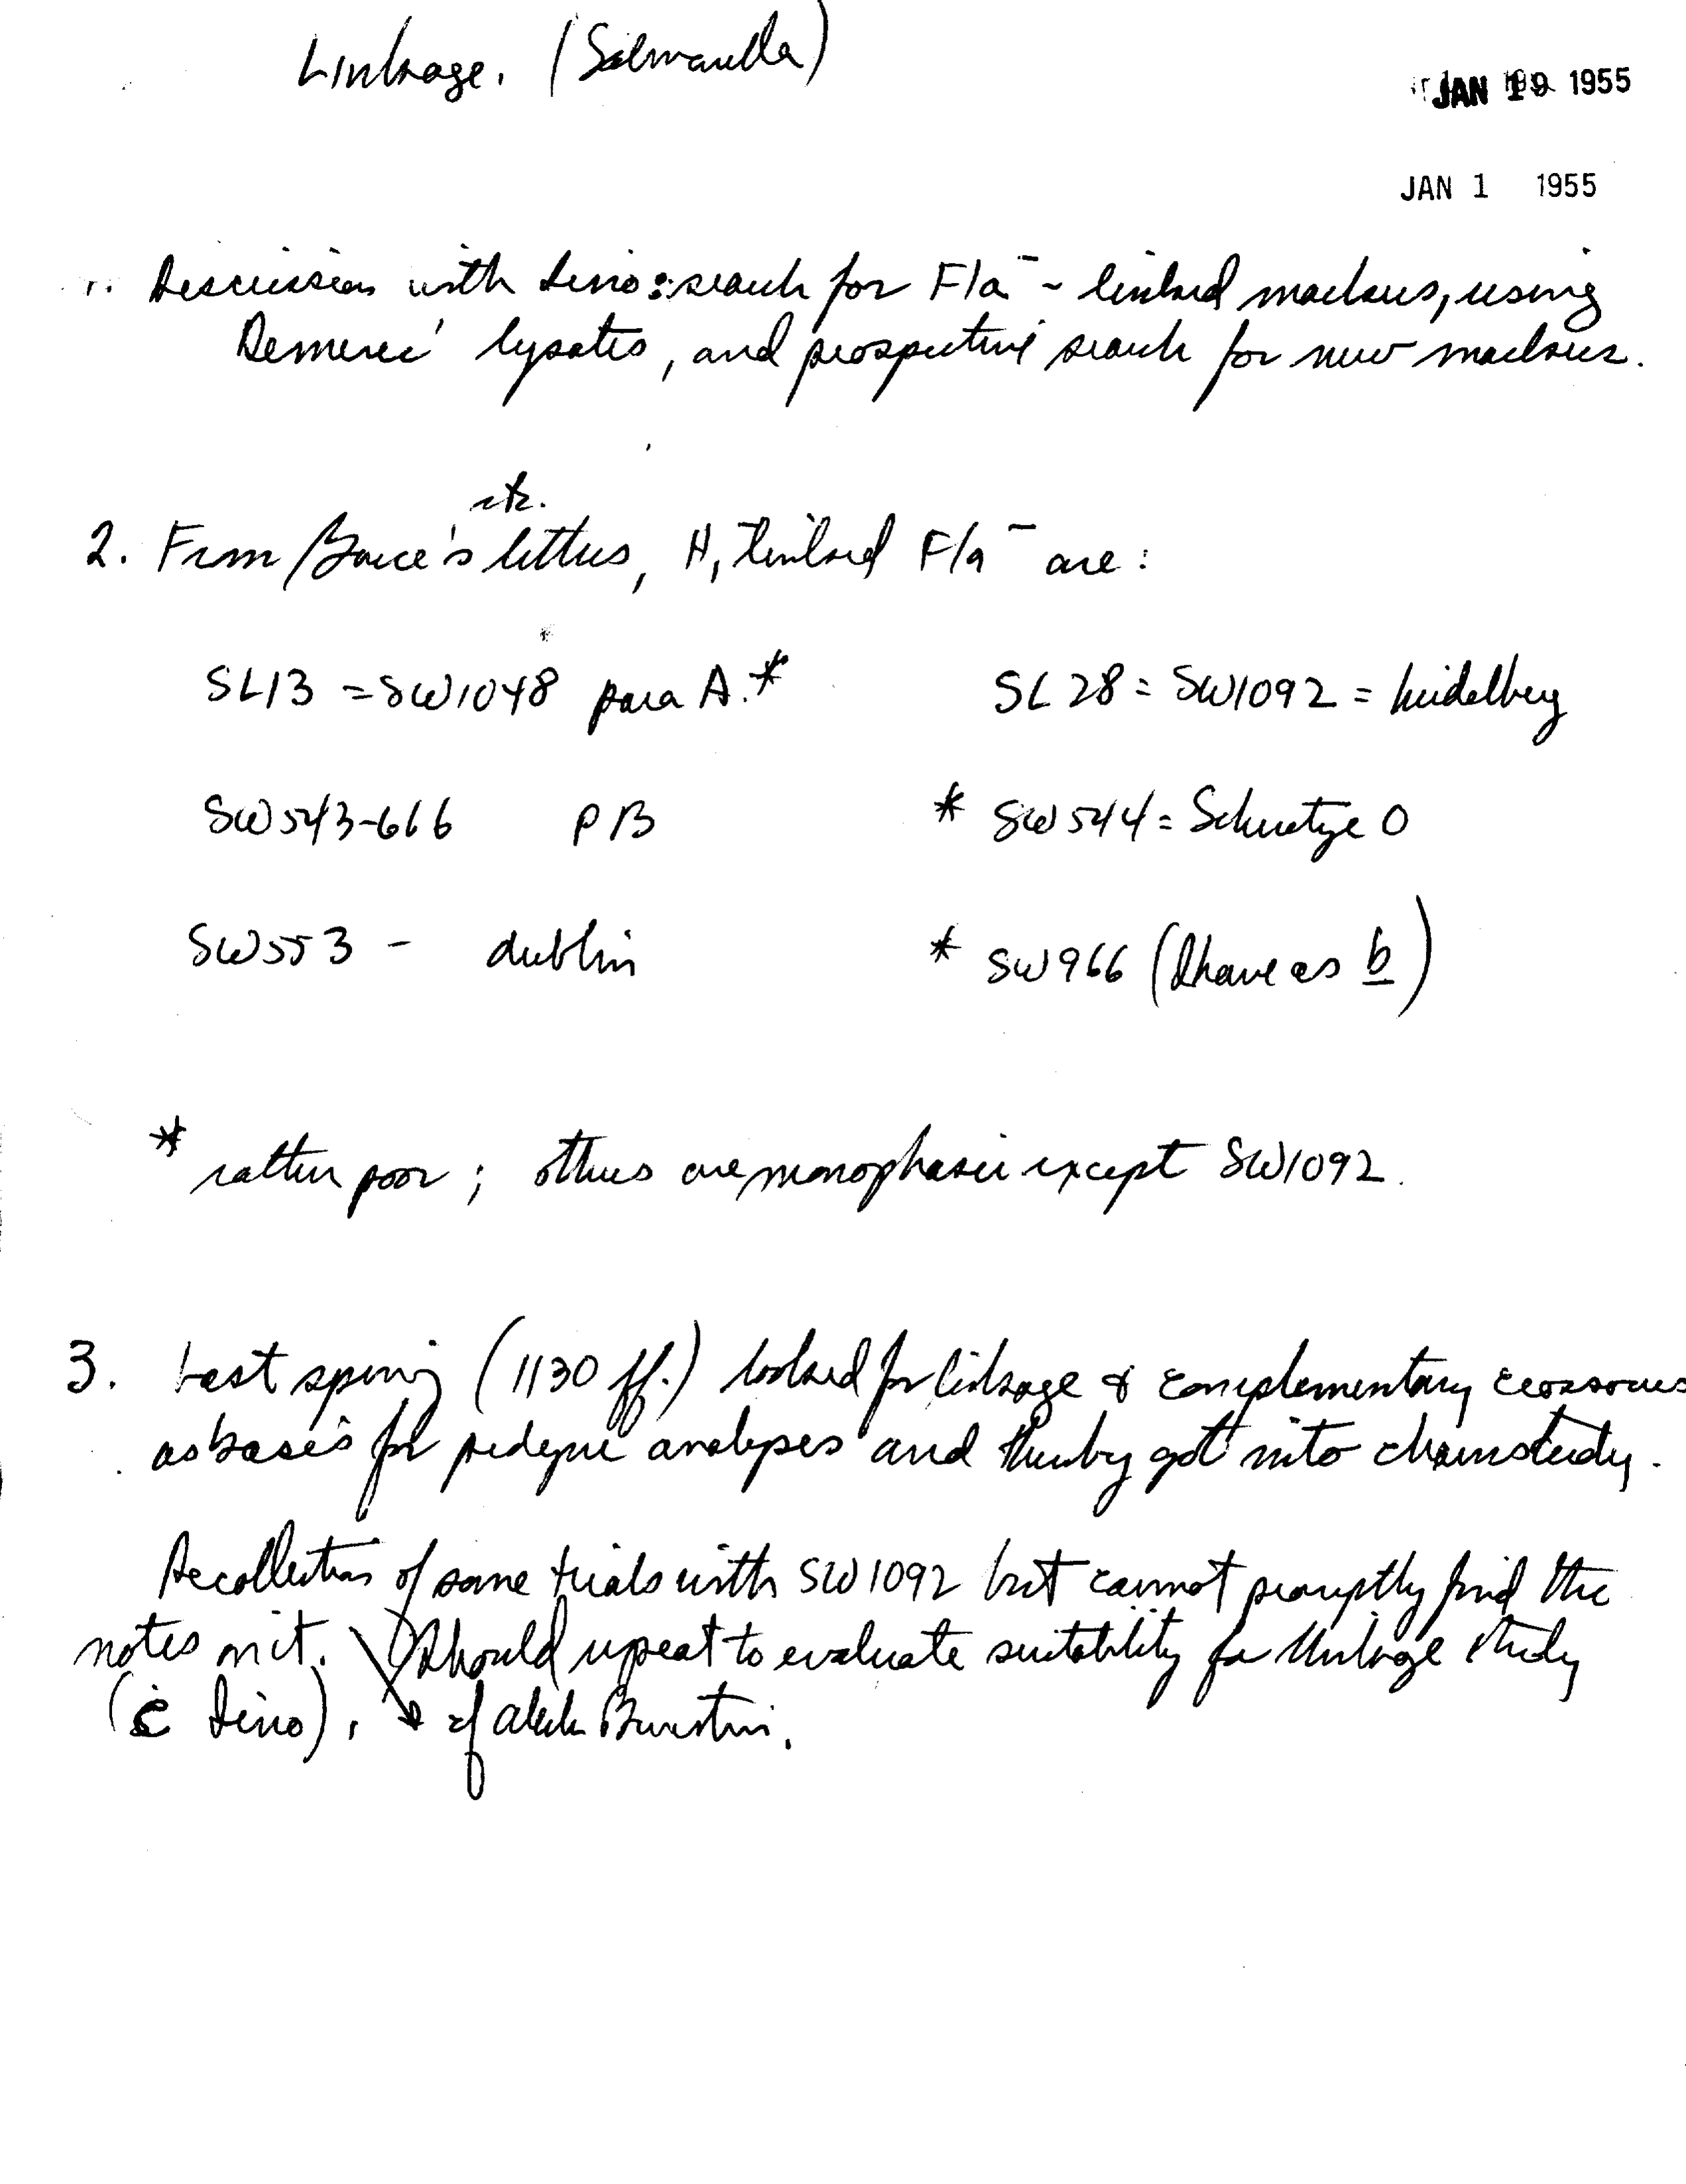 Linkage. (Salmonella)
JAN 19 1955
JAN 1 1955
1. Discussion with Lino: search for Fla⁻-linked markers, using
Demerec' lysates, and prospective search for new markers.
etc.
2. From Bruce's letters, H₁ linked Fla⁻ are:
SL13 = SW1048 para A.* SL28 = SW1092 = heidelberg
SW543-666 PB * SW544 = Schuetze O
SW553 - dublin * SW966 (I have as b)
* rather poor; others are monophasic except SW1092.
3. Last spring (1130 ff.) looked for linkage & complementary crossovers
as basis for pedigree analyses and thereby got into chain study.
Recollection of some trials with SW1092 but cannot promptly find the
notes on it. Should repeat to evaluate suitability for linkage study
(c̄ Lino). cf